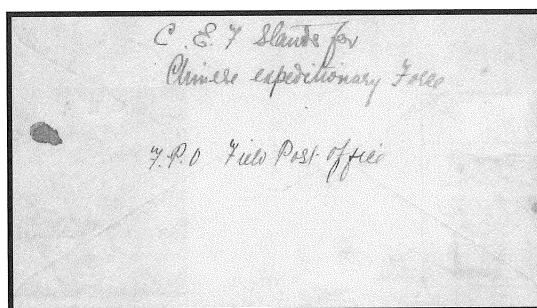 C. E. F Stands for
Chinese expeditionary Force
F.P.O Field Post office